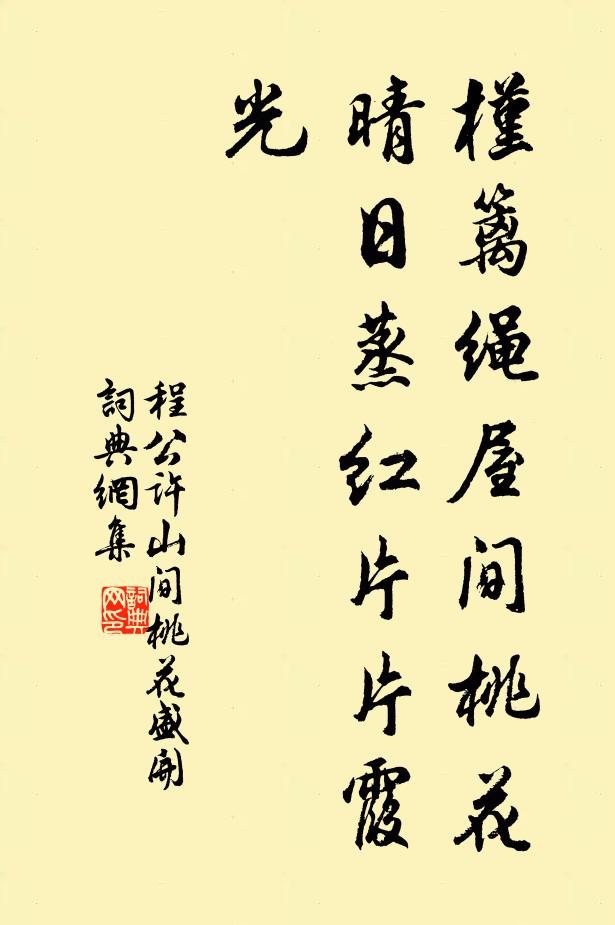 槿篱绳屋间桃花
晴日蒸红片片霞
光
程公许山间桃花盛开
詞典網集
詞典网印